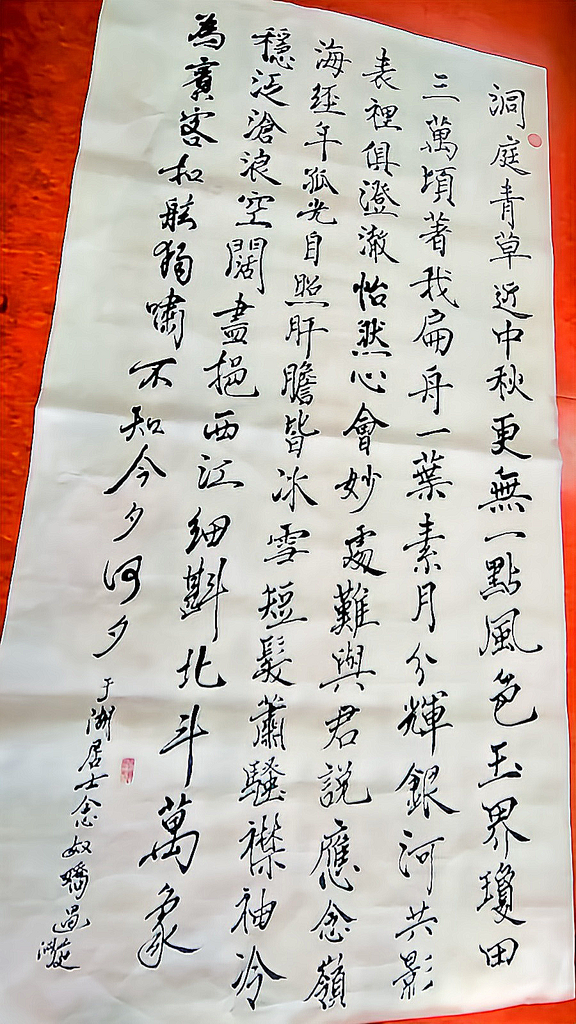 洞庭青草近中秋更無一點風色玉界瓊田
三萬頃著我扁舟一葉素月分輝銀河共影
表裡俱澄澈怡然心會妙處難與君説應念嶺
海經年孤光自照肝膽皆冰雪短髮蕭騷襟袖冷
穩泛滄浪空闊盡挹西江細斟北斗萬象
為賓客扣舷獨嘯不知今夕何夕
于湖居士念奴嬌過洞庭